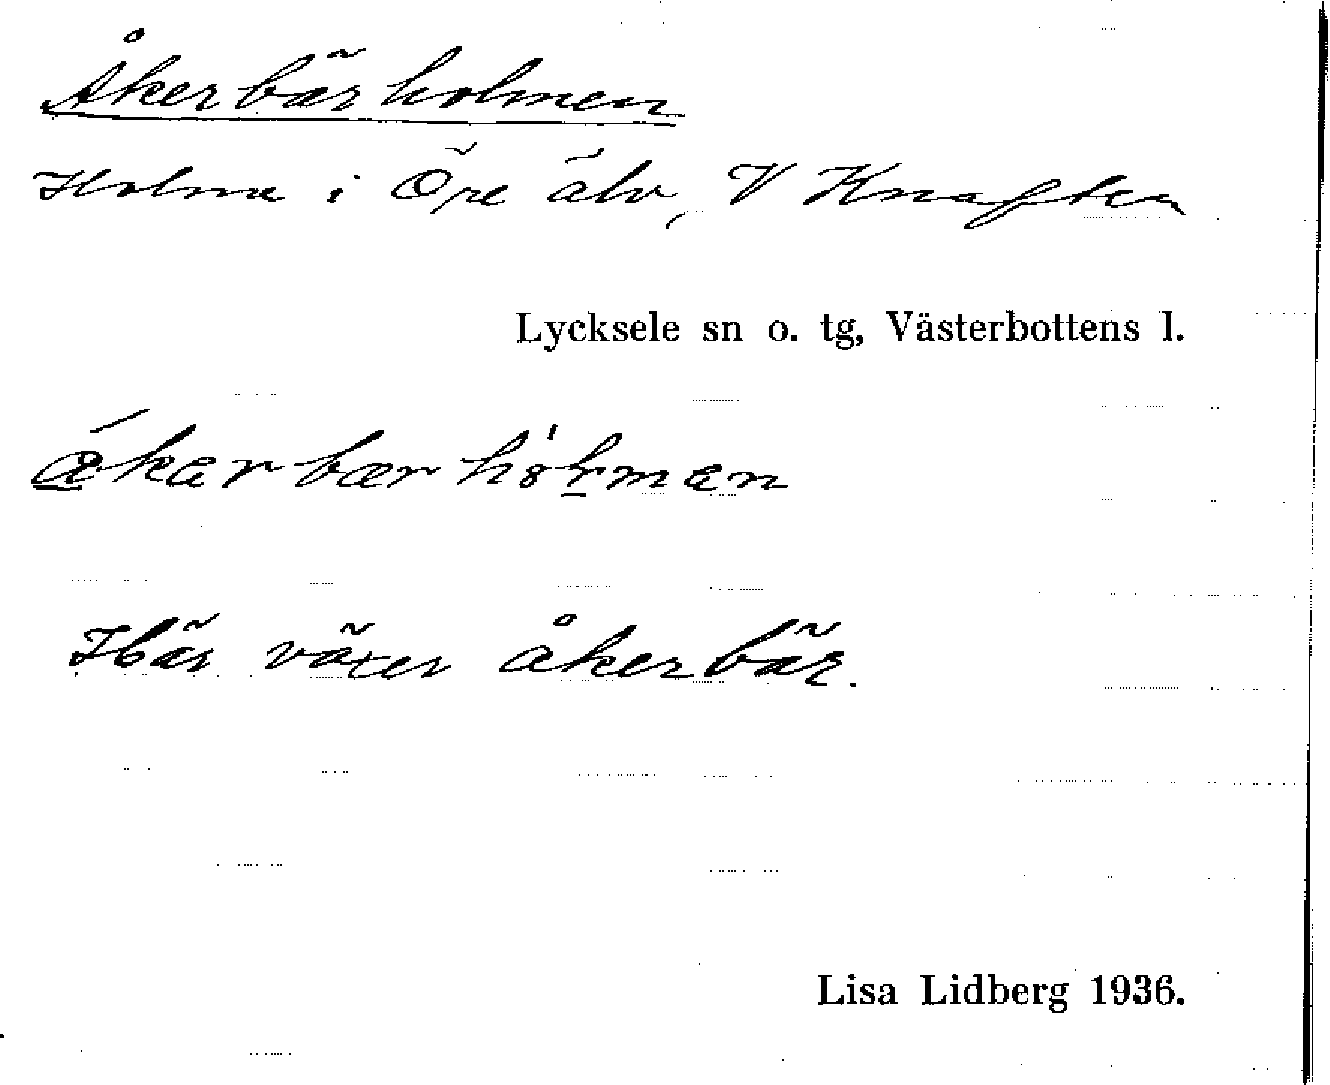 Åkerbärholmen
Holme i Öre älv, V Knaften
Lycksele sn o. tg, Västerbottens l.
Här växer åkerbär.
Lisa Lidberg 1936.